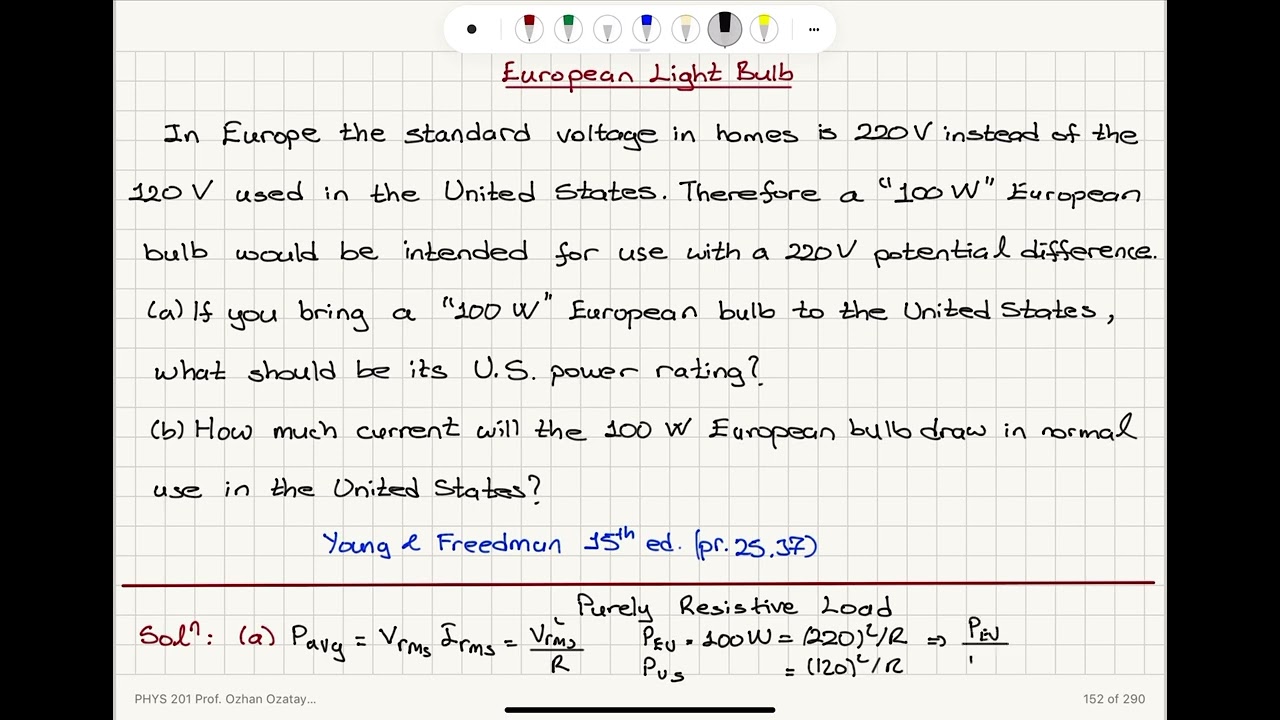 European Light Bulb
In Europe the standard voltage in homes is 220 V instead of the
120 V used in the United States. Therefore a "100 W" European
bulb would be intended for use with a 220 V potential difference.
(a) If you bring a "100 W" European bulb to the United States,
what should be its U.S. power rating?
(b) How much current will the 100 W European bulb draw in normal
use in the United States?
Young & Freedman 15th ed. (pr. 25.37)
Purely Resistive Load
Solⁿ: (a) Pavg = Vrms Irms = Vrms²/R PEU = 100 W = (220)²/R ⇒ PEU/
PUS = (120)²/R
PHYS 201 Prof. Ozhan Ozatay... 152 of 290